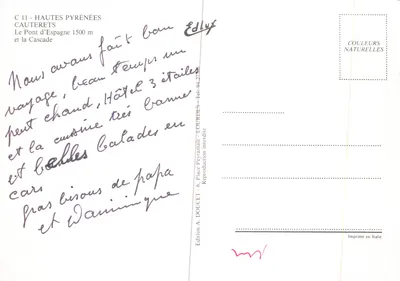 C 11 – HAUTES PYRÉNÉES
CAUTERETS
Le Pont d'Espagne 1500 m
et la Cascade
Nous avons fait bon
voyage, beau temps un
peut chaud, Hôtel 3 étoiles
et la cuisine très bonne
et belles balades en
cars
gros bisous de papa
et Dominique
Edition A. DOUCET - 
LOURDES - Tél.
Reproduction interdite
COULEURS
NATURELLES
Imprimé en Italie